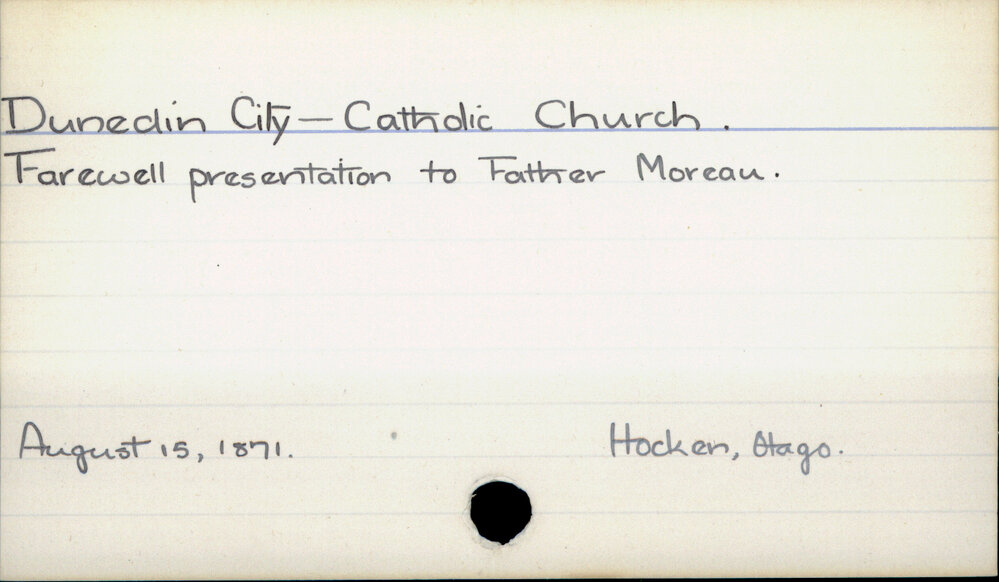 Dunedin City — Catholic Church.
Farewell presentation to Father Moreau.
August 15, 1871.
Hocken, Otago.